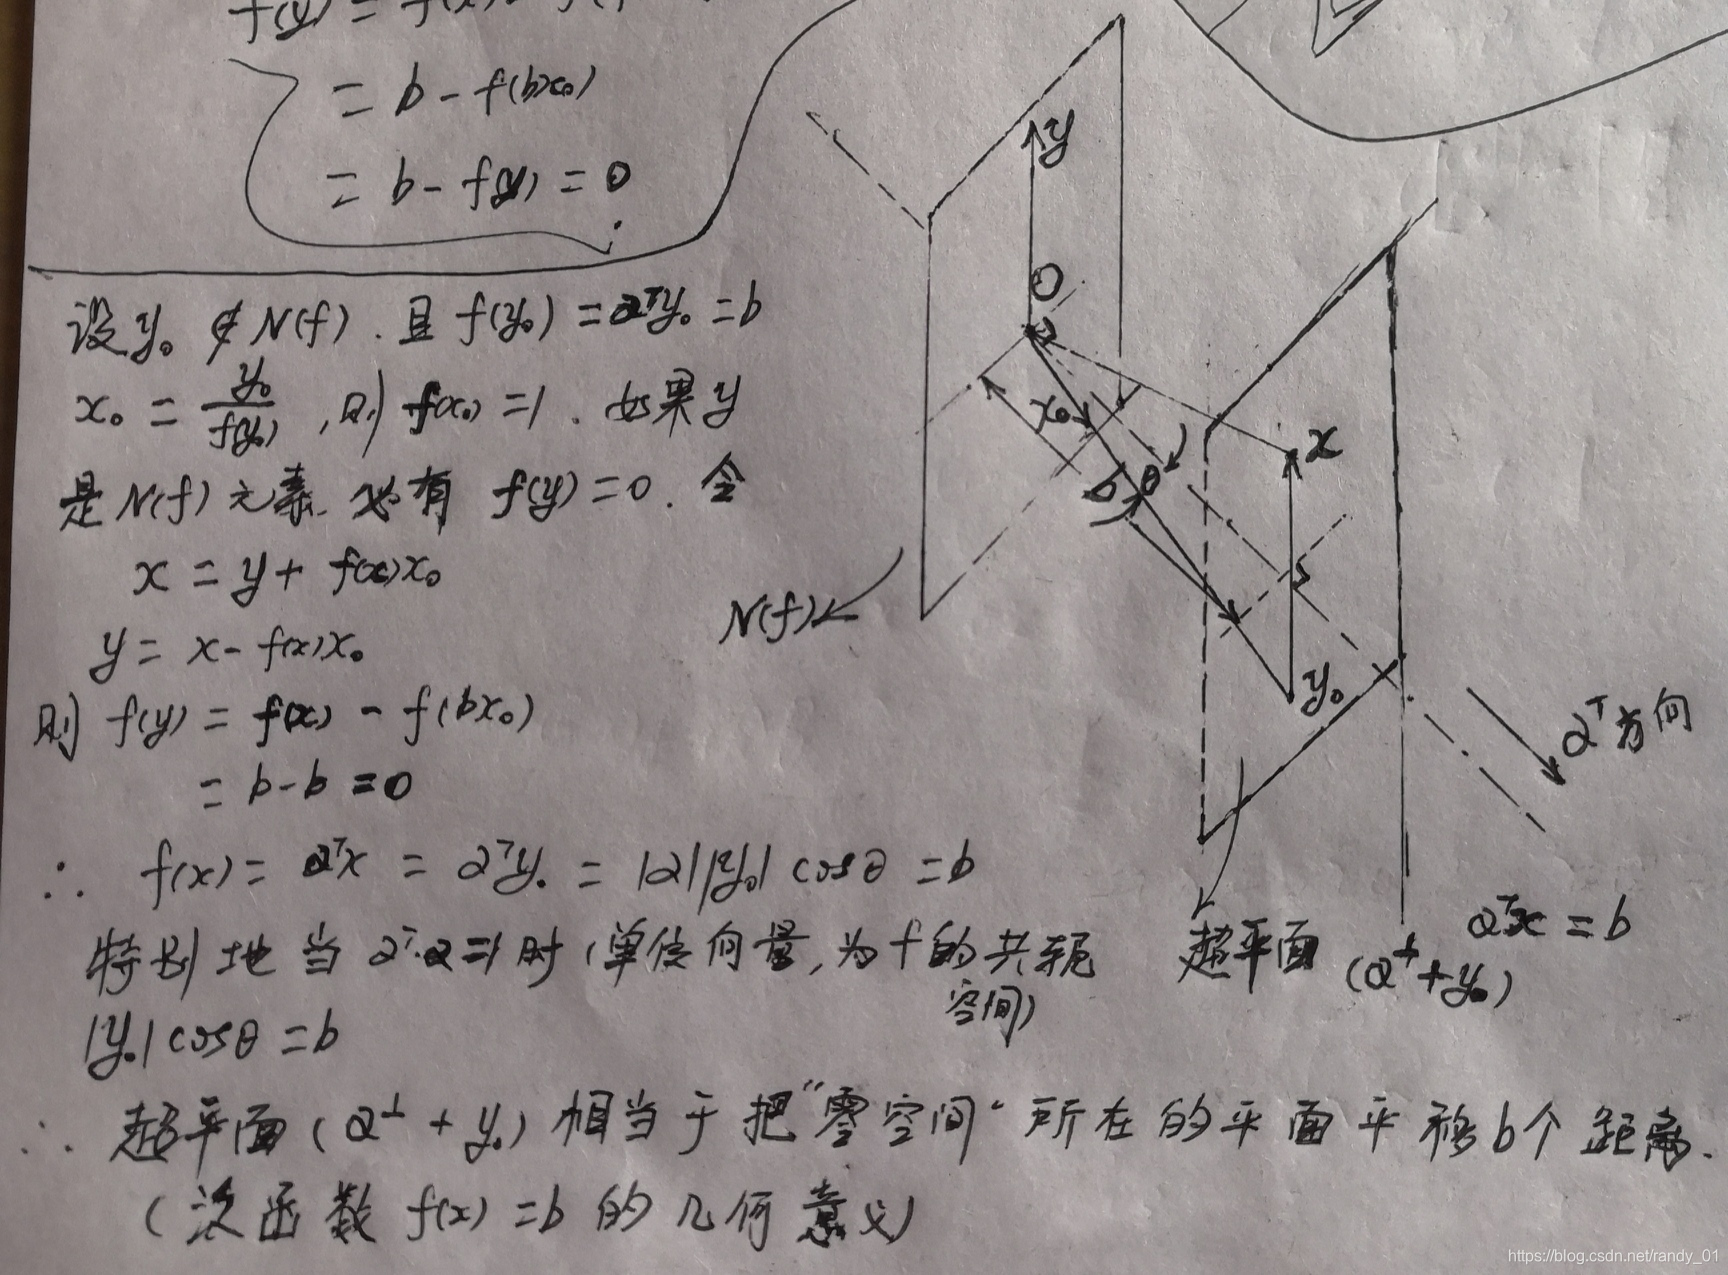 = b - f(bx₀)
= b - f(y) = 0
设 y₀ ∉ N(f). 且 f(y₀) = a^T y₀ = b
x₀ = y₀/f(y₀), 则 f(x₀) = 1. 如果 y
是 N(f) 元素. 必有 f(y) = 0. 令
x = y + f(x)x₀
y = x - f(x)x₀
则 f(y) = f(x) - f(bx₀)
= b - b = 0
∴ f(x) = a^T x = a^T y₀ = |a||y₀| cosθ = b
特别地当 a^T·a = 1 时 (单位向量, 为 f 的共轭
空间)
|y₀| cosθ = b
∴ 超平面 (a^⊥ + y₀) 相当于把 "零空间" 所在的平面平移 b 个距离.
(泛函数 f(x) = b 的几何意义)
y
O
x₀
b
θ
x
y₀
N(f)
a^T 方向
超平面 (a^⊥ + y₀)
a^T x = b
https://blog.csdn.net/randy_01